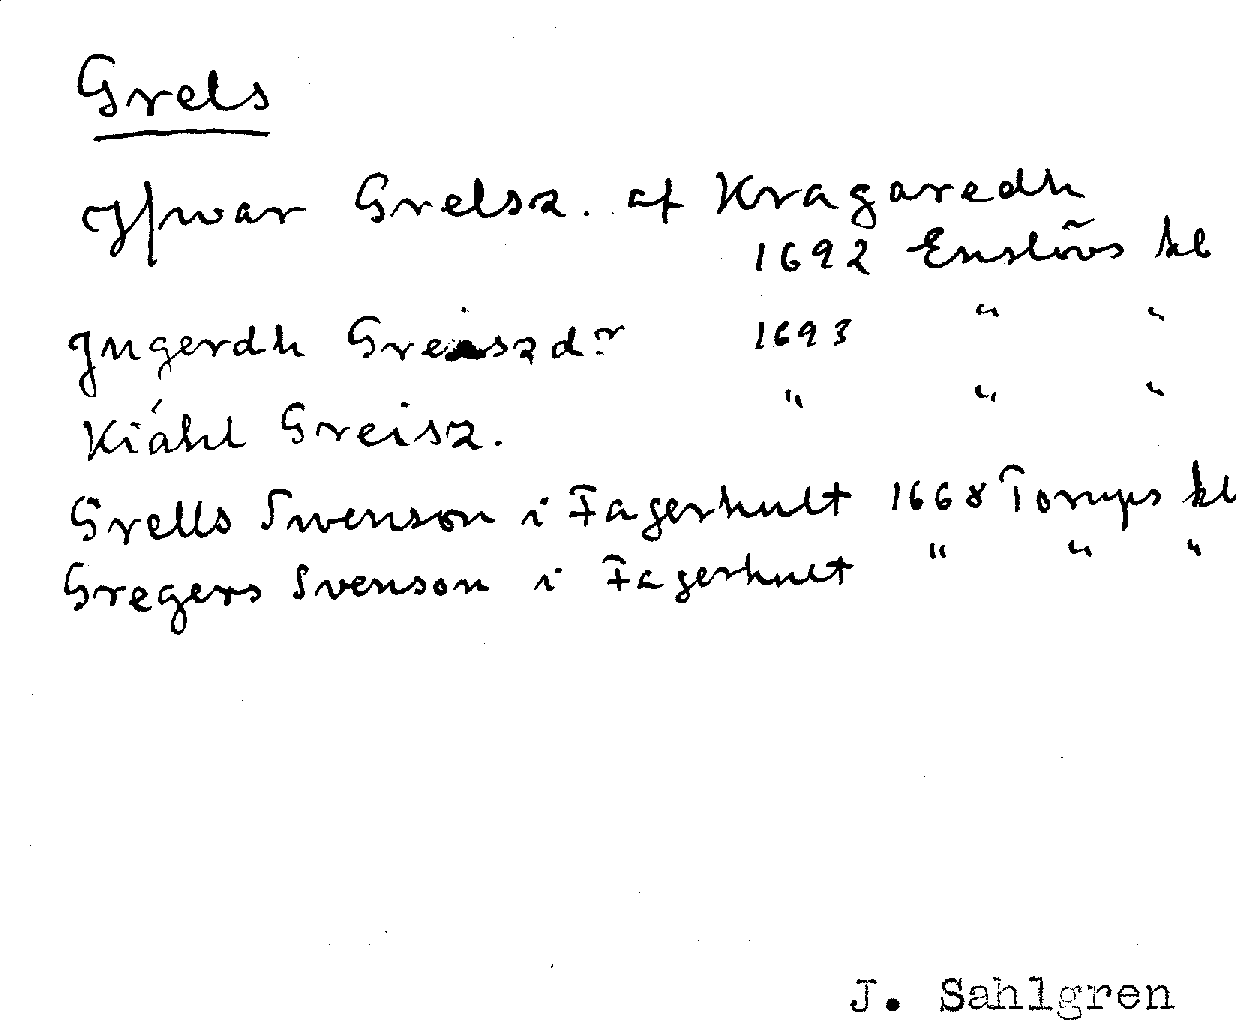 Grels
Jffwar Grelsz. af Kragaredh
1692 Enslövs kb
Jngerdh Greiszd:r 1693 " "
Kiáhl Greisz. " " "
Grells Swenson i Fagerhult 1668 Torups kb
Gregers Svenson i Fagerhult " " "
J. Sahlgren